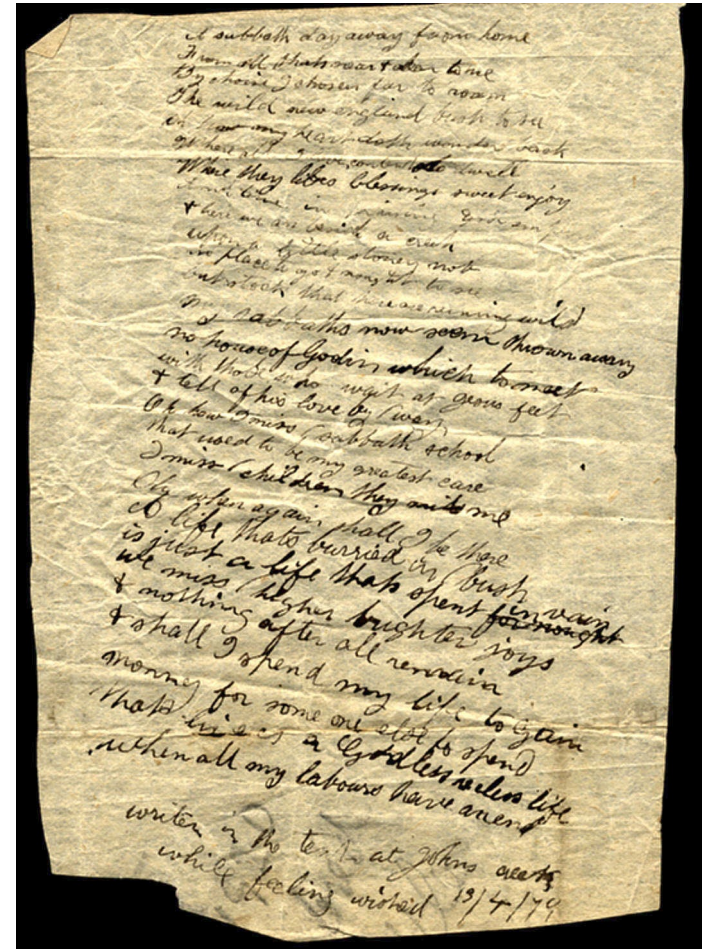 A sabbath day away from home
From all thats near & dear to me
By choise I chosen far to roam
The wild new england bush to see
my heart doth wander back
content to dwell
Where they lifes blessings sweet enjoy
And time in
& here we are beside a creek
whona little stoney not
in place a got nought to see
but stock that here are running wild
my sabbaths now seem thrown away
no house of God in which to meet
with those who wait at grous feet
& tell of his love by way
Oh how I miss / sabbath school
that used to be my greatest care
I miss / children they miss me
Oh when again shall I be there
A life thats burried in bush
is just a life thats spent for nought in vain
we miss / higher brighter joys
& nothing after all remain
& shall I spend my life to gain
monney for some one else to spend
thats lives a Godless reckless life
when all my labours have an end
writen in the tent at Johns creek
while feeling wished 13/4/79